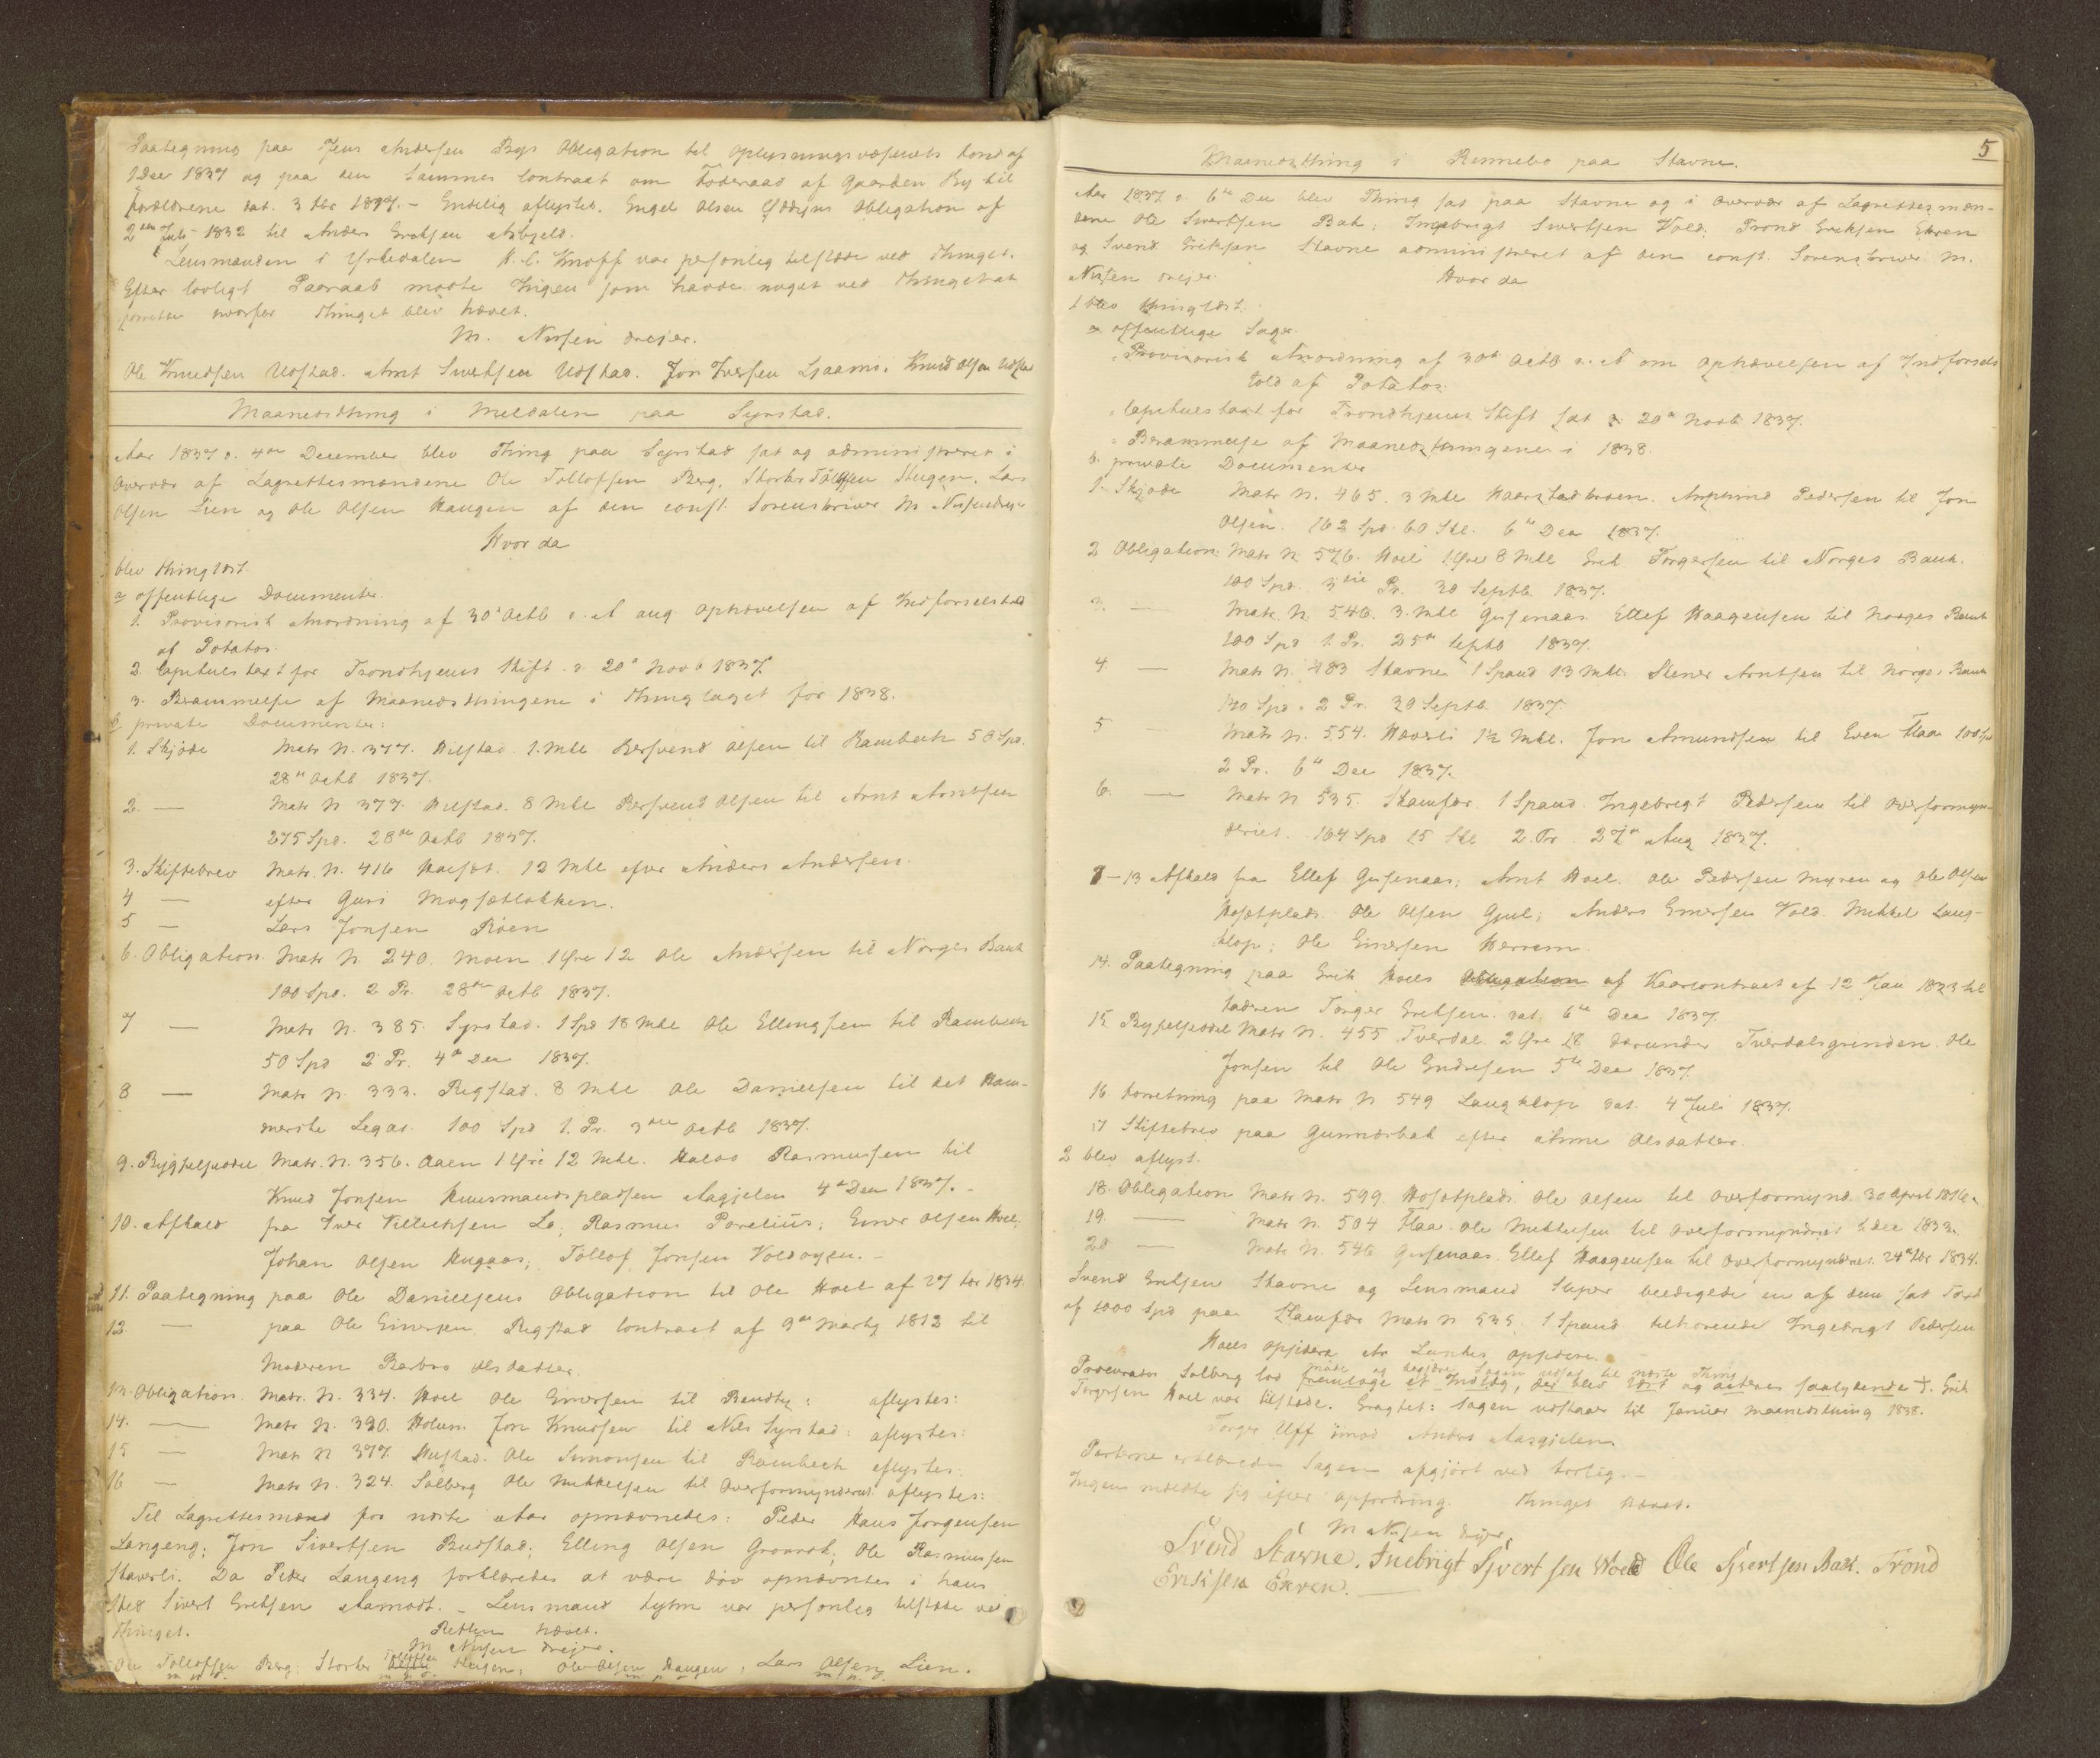 Paategning paa Jens Andersen Bys Obligation til Oplysningsvæsenets Fond af
1 Dec 1837 og paa den sammes Contract om Føderaad af Gaarden By til
Forældrene dat. 3 1837. – Endelig aflystes. Engel Olsen Obligation af
2den Juli 1832 til Anders Eriksen
Lensmanden i Ørkedalen H. C. Knoff var personlig tilstæde ved Thinget.
Efter lovligt Paaraab mødte Ingen som havde noget ved Thingetat
forrette hvorfor Thinget blev hævet.
M. Nissen Drejer.
Ole Knudsen Udstad. Arnt Sivertsen Udstad. Jon Iversen Ljaamo. Knud Olsen Udstad
Maanedsthing i Meldalen paa Syrstad.
Aar 1837 d. 4de December blev Thing paa Syrstad sat og administreret i
Overvær af Lagrettesmændene Ole Tolloffsen Berg, Storker Tolloffsen Stugen, Lars
Olsen Lien og Ole Olsen Haugen af den const. Sorenskriver M. Nissen Dreyer
Hvor da
blev thinglæst.
a offentlige Documenter.
1. Provisorisk Anordning af 30te Octb d. A ang Ophævelsen af Indførselstold
af Potatos.
2. Capitulstaxt for Trondhjems Stift d. 20de Novb 1837.
3. Berammelse af Maanedsthingene i Thinglaget for 1838.
b private Documenter:
1. Skjøde Matr N. 377. Hilstad. 1. Mkl Bersvend Olsen til Rambech 50 Spd.
28de Octb 1837.
2. — Matr N 377. Hilstad. 8 Mkl Bersvend Olsen til Arnt Arntsen
275 Spd. 28de Octb 1837.
3. Skiftebrev Matr. N. 416 12 Mkl efter Anders Andersen.
4 — efter Guri Mogsætløkken.
5 — Lars Jonsen Røen
6. Obligation. Matr N. 240. Moen 1 Øre 12 Ole Andersen til Norges Bank
100 Spd. 2 Pr. 28de Octb 1837.
7 — Matr N. 385. Syrstad. 1 Spd 18 Mkl Ole Ellingsen til Rambech
50 Spd 2 Pr. 4de Dec 1837.
8 — Matr N. 333. Rigstad. 8 Mkl Ole Danielsen til det Ham-
merske Legat. 100 Spd 1. Pr. 3die Octb 1837.
9. Bygselseddel Matr. N. 356. Aaen 1 Øre 12 Mkl. Halvo Rasmussen til
Knud Jonsen Huusmandspladsen Aagjelen 4de Dec 1837. –
10. Afkald fra Iver Lo, Rasmus Parelius, Einer Olsen Hoel,
Johan Olsen Hugaas, Tollof Jonsen Voldøyen. –
11. Paategning paa Ole Danielsens Obligation til Ole Hoel af 27 1834.
12 — paa Ole Einersen Rigstad Contract af 9de Marts 1812 til
Moderen Barbro Olsdatter.
13. Obligation. Matr. N. 334. Hoel Ole Einersen til : aflystes:
14. — Matr N. 390. Holum Jon Knudsen til Nils Syrstad: aflystes:
15 — Matr N 377. Hilstad. Ole Simonsen til Rambech aflystes.
16 — Matr N. 324. Solberg Ole Mikkelsen til Overformynderiet aflystes:
Til Lagrettesmænd for næste Aar opnævnedes: Peder Hans Jørgensen
Langeng; Jon Sivertsen Budstad; Elling Olsen Ole Rasmussen
Staverli. Da Peder Langeng forklaredes at være døv opnævntes i hans
Sted Sivert Eriksen Aamodt. – Lensmand var personlig tilstæde ved
Thinget. Retten hævet.
M Nissen Dreyer.
Ole Tolloffsen Berg, Storker Tolloffsen Stugen, Ole Olsen Haugen, Lars Olsen Lien.
5
Maanedsthing i Rennebo paa Stavne.
Aar 1837 d. 6te Dec blev Thing sat paa Stavne og i Overvær af Lagrettesmæn-
dene Ole Sivertsen Bak, Ingebrigt Sivertsen Vold, Trond Eriksen Ekren
og Svend Eriksen Stavne administreret af den const. Sorenskriver M.
Nissen Dreyer. Hvor da
1 blev thinglæst:
a offentlige Sager.
Provisorisk Anordning af 30te Octb d. A om Ophævelsen af Indførsels
told af Potatos.
Capitulstaxt for Trondhjems Stift sat d. 20de Novb 1837.
Berammelse af Maanedsthingene i 1838.
b. private Documenter
1. Skjøde Matr N. 465. 3 Mkl Haarstadtrøen. Pedersen til Jon
Olsen. 162 Spd 60 Skl. 6te Dec 1837.
2 Obligation. Matr N. 576. Hoel 1 Øre 8 Mkl Erik Torgersen til Norges Bank.
100 Spd. 3die Pr. 30 Septb 1837.
3. — Matr. N. 546. 3. Mkl Gisenaas Ellef Haagensen til Norges Bank
100 Spd 1. Pr. 25de Septb 1837.
4. — Matr N. 483 Stavne 1 Spand 13 Mkl. Stener Arntsen til Norges Bank
130 Spd. 2 Pr. 30 Septb 1837.
5 — Matr N. 554. Haverli 1½ Mkl. Jon Amundsen til Even Flaa 100 Spd
2 Pr. 6te Dec 1837.
6. — Matr N 535. Skamfær. 1 Spand. Ingebrigt Pedersen til Overformyn-
deriet. 164 Spd 15 Skl 2. Pr. 27de Aug 1837.
8–13 Afkald fra Ellef Gisenaas, Arnt Hoel. Ole Pedersen Myren og Ole Olsen
Hosætplads. Ole Olsen Gjul; Anders Einersen Vold. Mikkel Lang-
klop; Ole Einersen Herrem.
14. Paategning paa Erik Hoels Obligation af Kaarcontract af 12 Jan 1823 til
Faderen Torger Eriksen. dat. 6te Dec 1837.
15. Bygselseddel Matr N. 455 Tverdal. 2 Øre 18 derunder Tverdalsgrinden Ole
Jonsen til Ole Endresen 5te Dec 1837.
16. Forretning paa Matr N 549 Langklop dat. 4 Juli 1837.
17 Skiftebrev paa Gunnesbak efter Anne Olsdatter.
2 blev aflyst.
18. Obligation Matr N. 599. Hosætplads. Ole Olsen til Overformynd. 30 April 1816.
19. — Matr N. 504 Flaa. Ole Mikkelsen til Overformynderiet 6 Dec 1832.
20 — Matr N. 546 Gisenaas. Ellef Haagensen til Overformynderiet. 24de 1834.
Svend Eriksen Stavne og Lensmand beedigede en af dem sat Taxt
af 1000 Spd paa Skamfær Matr N 535. 1 Spand tilhørende Ingebrigt Pedersen
Procurator Solberg lod møde og begjære Sagen udsat til næste Thing
fremlægge et Indlæg, der blev læst og saalydende †. Erik
Torgersen Hoel var tilstæde. Eragtet: Sagen udstaaer til Januar Maanedsthing 1838.
Torger Uff imod Anders Aasgjelen
Parterne erklærede Sagen afgjort ved Forlig. –
Ingen meldte sig efter Opfordring. Thinget hævet.
M Nissen Dreyer.
Svend Stavne. Inebrigt Sjvert sen Wold Ole Sjvertsen Bak. Trond
Eriksen Ekren.